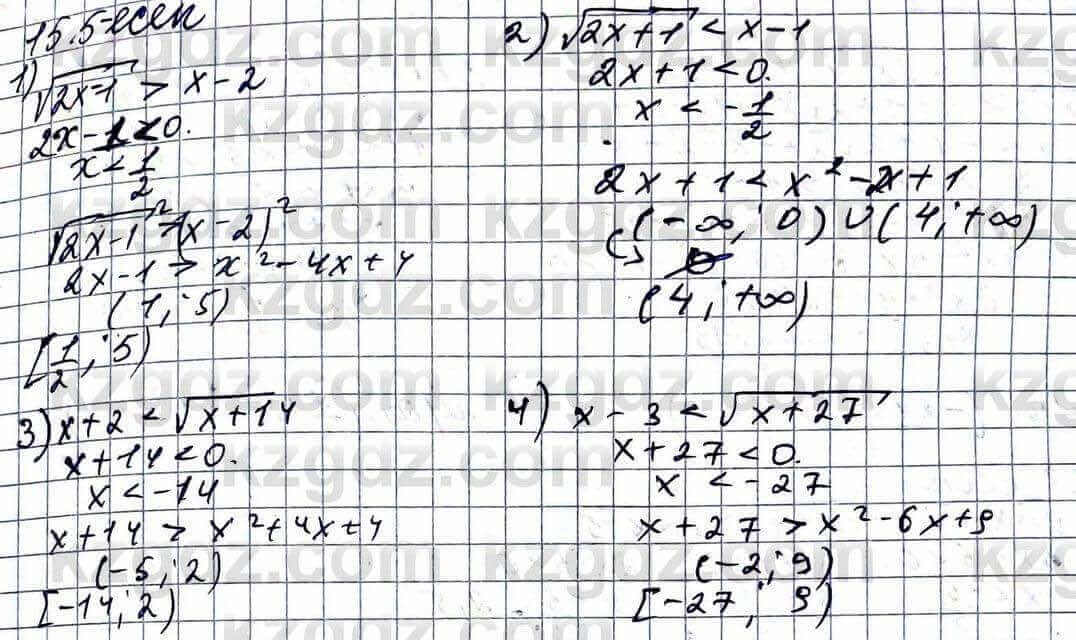 15.5-есеп
1) √2x-1 > x-2
2x-1<0.
x<1/2
√2x-1² > (x-2)²
2x-1 > x²-4x+4
(1; 5)
[1/2; 5)
2) √2x+1 < x-1
2x+1<0.
x < -1/2
2x+1 < x²-2x+1
(-∞; 0) ∪ (4; +∞)
(4; +∞)
3) x+2 < √x+14
x+14<0.
x<-14
x+14 > x²+4x+4
(-5; 2)
[-14; 2)
4) x-3 < √x+27
x+27<0.
x <-27
x+27 > x²-6x+9
(-2; 9)
[-27; 9)
kzgdz.com